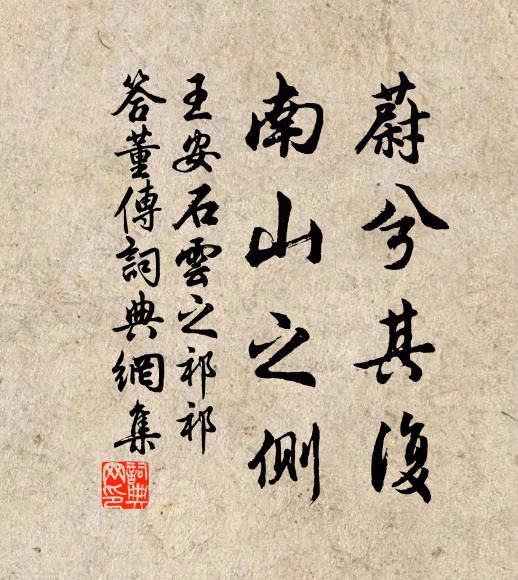 蔚兮其復
南山之側
王安石雲之祁祁
答董傳詞典網集
詞典
网印